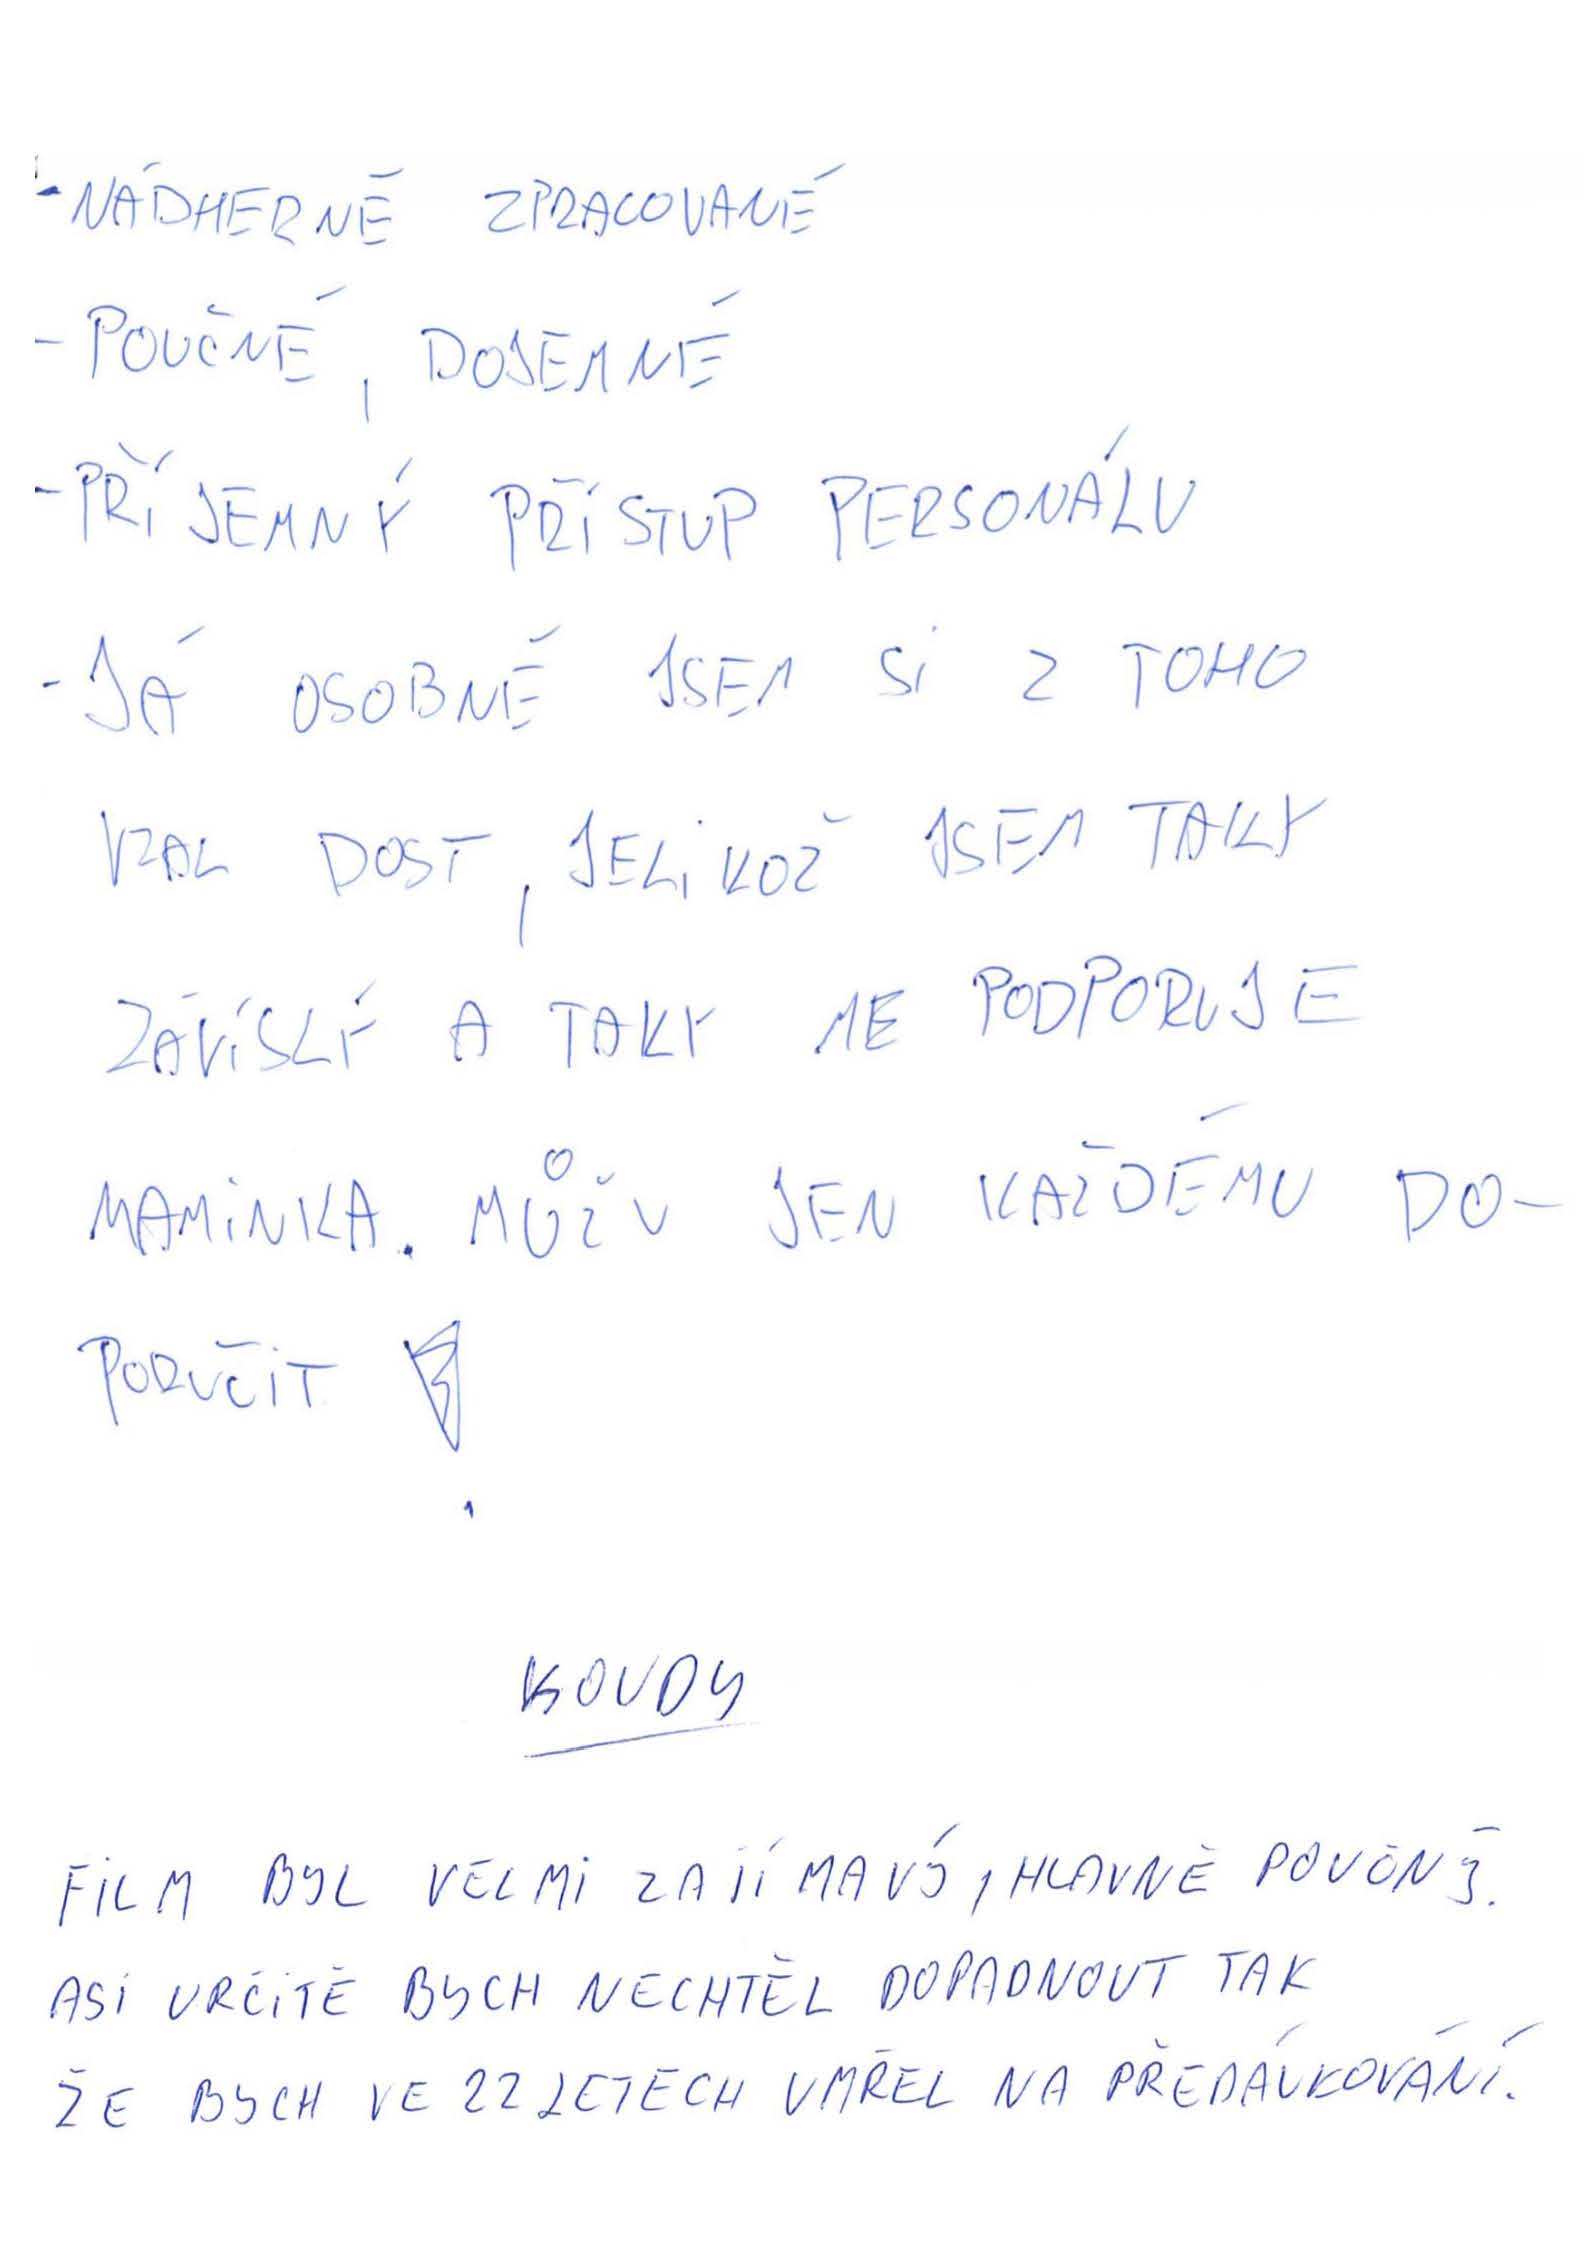 - NÁDHERNĚ ZPRACOVANÉ
- POUČNÉ, DOJEMNÉ
- PŘÍJEMNÝ PŘÍSTUP PERSONÁLU
- JÁ OSOBNĚ JSEM SI Z TOHO
VZAL DOST, JELIKOŽ JSEM TAKY
ZÁVISLÝ A TAKY ME PODPORUJE
MAMINKA. MŮŽU JEN KAŽDÉMU DO-
PORUČIT !
KOUDY
FILM BYL VELMI ZAJÍMAVÝ, HLAVNĚ POUČNÝ.
ASI URČITĚ BYCH NECHTĚL DOPADNOUT TAK
ŽE BYCH VE 22 LETECH UMŘEL NA PŘEDÁVKOVÁNÍ.